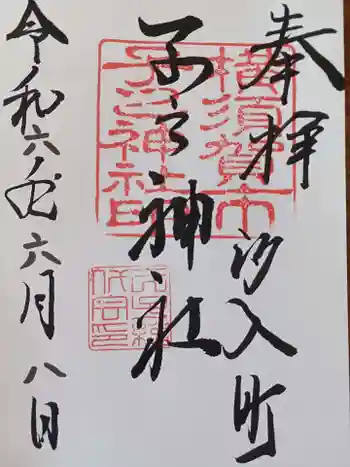 奉拝
汐入町
子之神社
令和六年六月八日
横須賀市
子之神社印